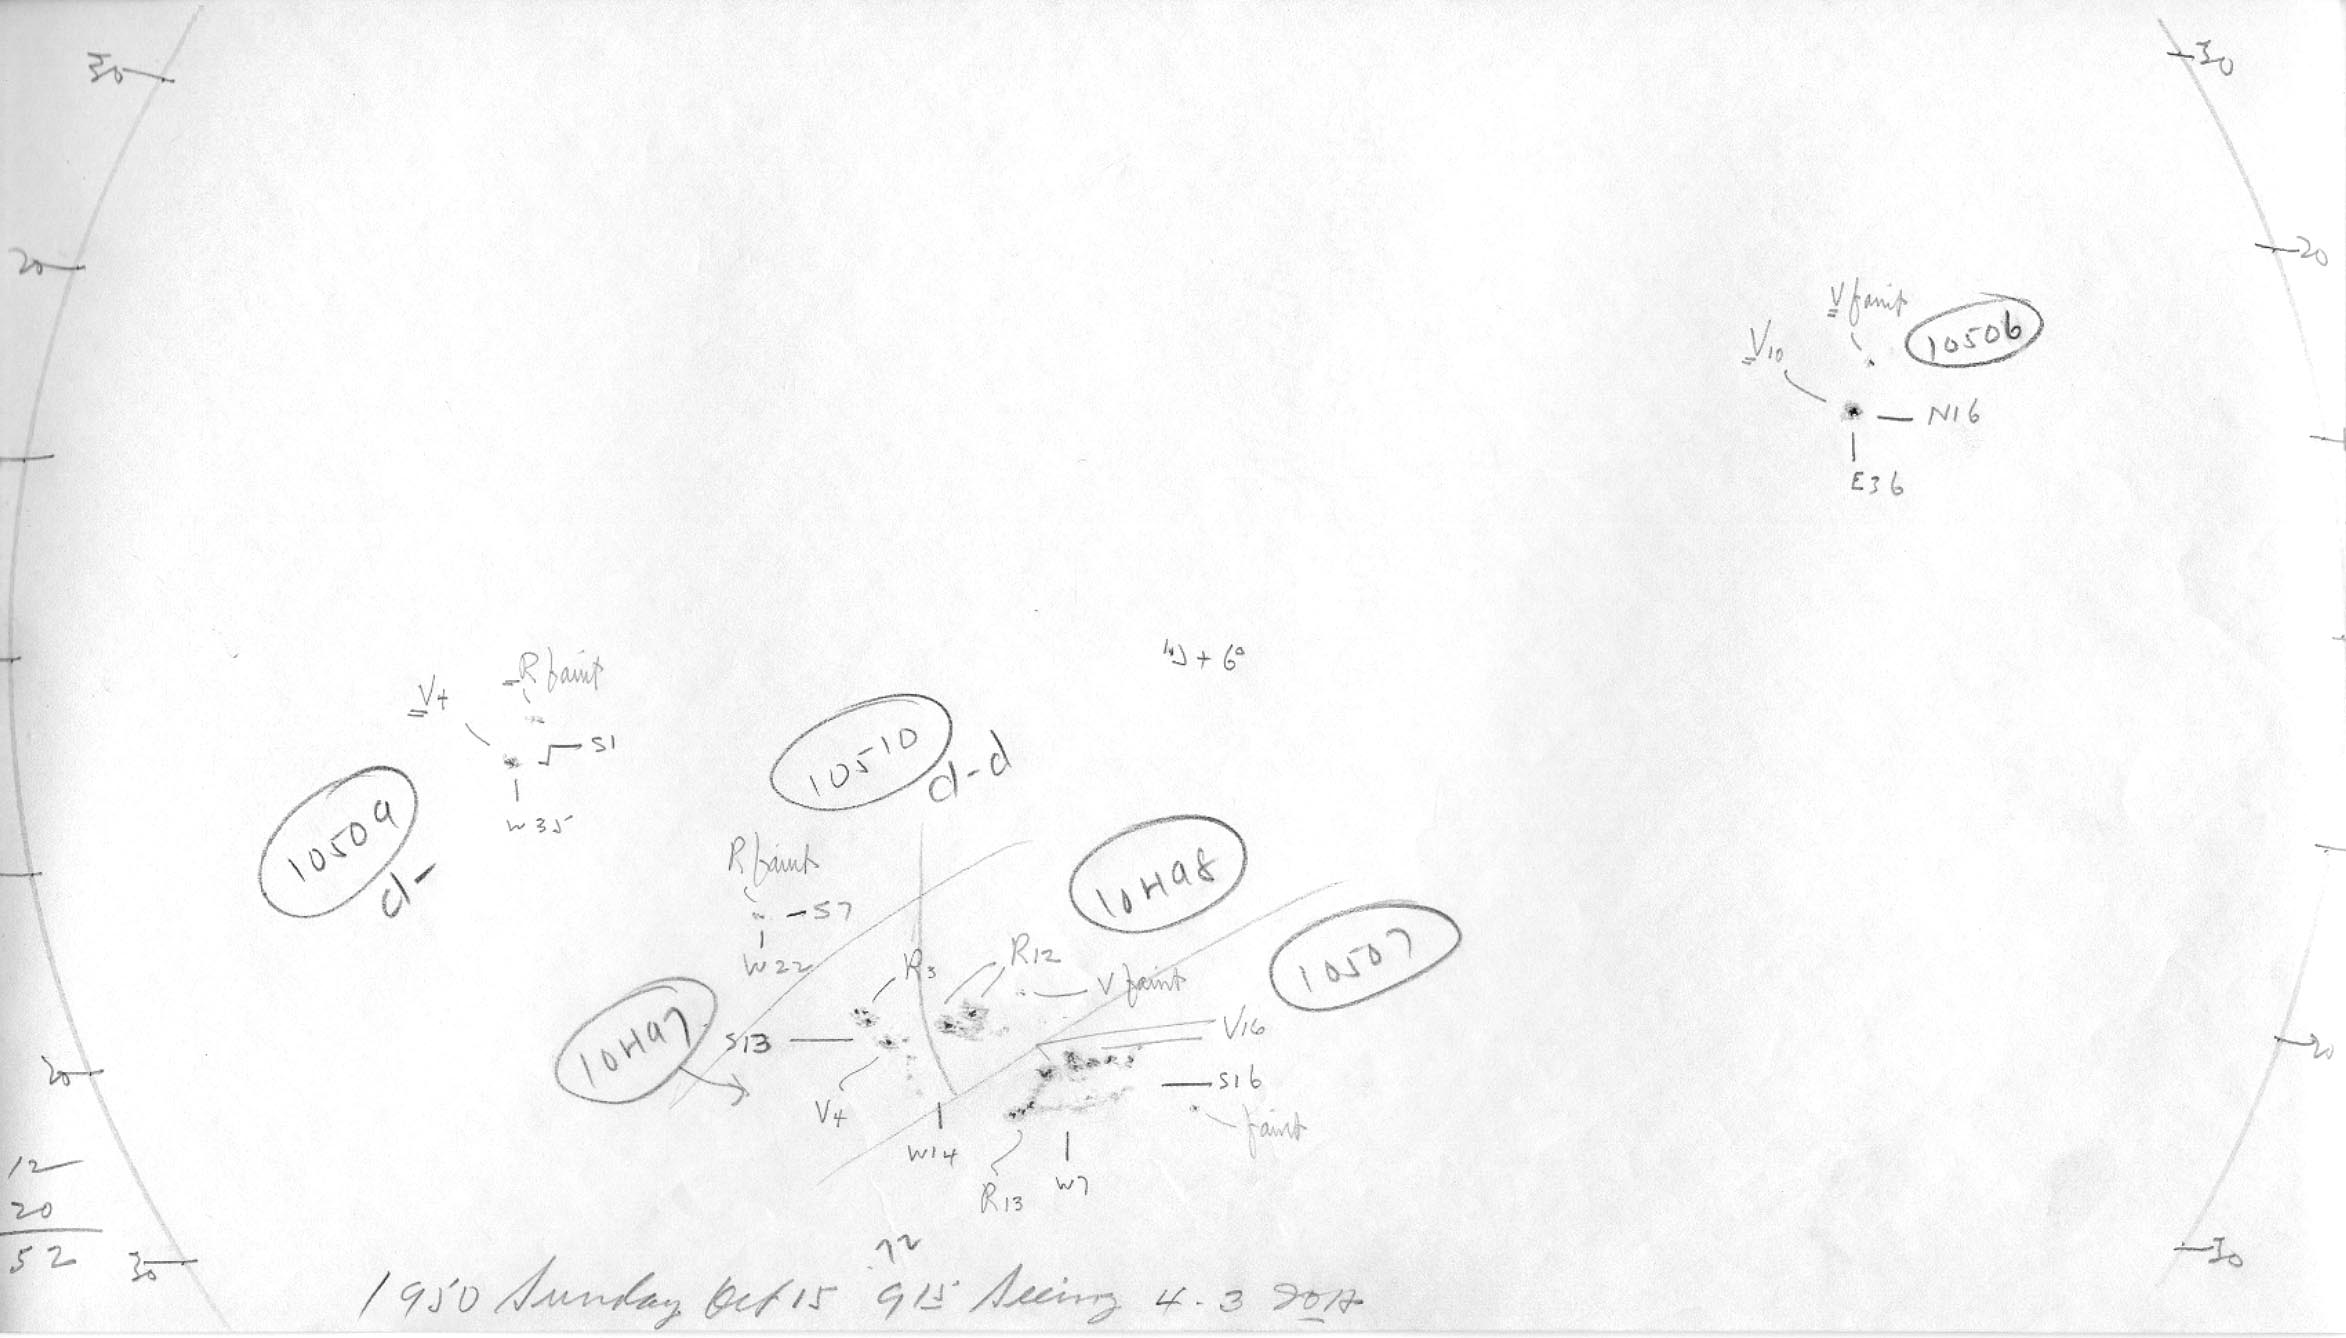 30
30
20
20
V faint
10506
V10
N16
E36
R faint
V4
S1
W35
10509
d-
+ 6°
10510
d-d
R faint
S7
W22
10498
10507
R3
R12
V faint
10497
S13
V16
S16
V4
faint
W14
R13
W7
20
20
12
20
52
30
30
.72
1950 Sunday Oct 15 9 15 Seeing 4-3